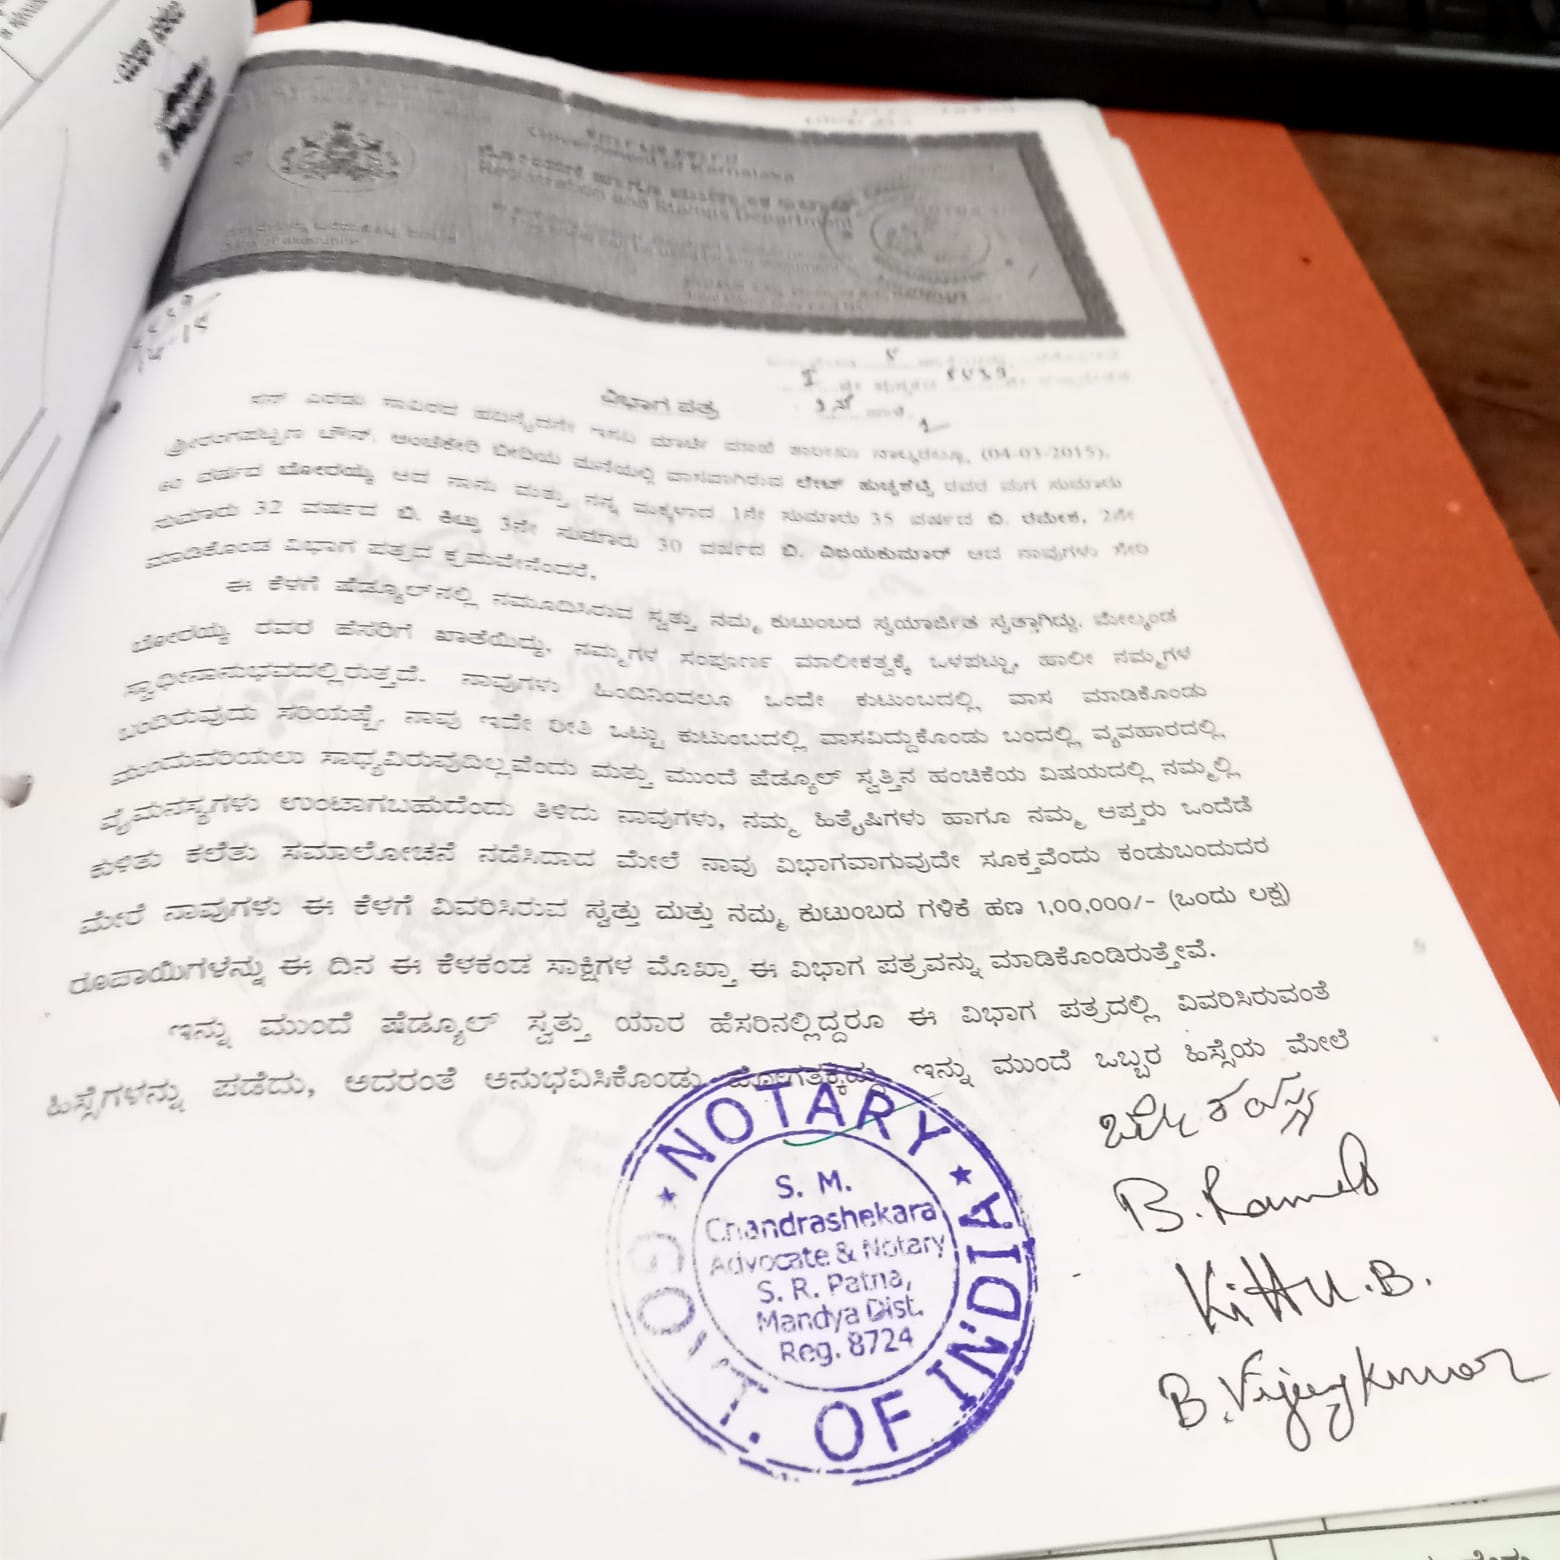 Government of Karnataka
ನೋಂದಣಿ ಹಾಗೂ ಮುದ್ರಾಂಕ ಇಲಾಖೆ
Registration and Stamps Department
ವಿಭಾಗ ಪತ್ರ
ಸನ್ ಎರಡು ಸಾವಿರದ ಹದಿನೈದನೇ ಇಸವಿ ಮಾರ್ಚಿ ಮಾಹೆ ತಾರೀಖು ನಾಲ್ಕರಲ್ಲೂ, (04-03-2015),
ಶ್ರೀರಂಗಪಟ್ಟಣ ಟೌನ್, ಅಂಚೆಕೇರಿ ಬೀದಿಯ ಮನೆಯಲ್ಲಿ ವಾಸವಾಗಿರುವ ಲೇಟ್ ಹುಚ್ಚಶೆಟ್ಟಿ ರವರ ಮಗ ಸುಮಾರು
೬೦ ವರ್ಷದ ಬೋರಯ್ಯ ಆದ ನಾನು ಮತ್ತು ನನ್ನ ಮಕ್ಕಳಾದ 1ನೇ ಸುಮಾರು 35 ವರ್ಷದ ಬಿ. ರಮೇಶ, 2ನೇ
ಸುಮಾರು 32 ವರ್ಷದ ಬಿ. ಕಿಟ್ಟು 3ನೇ ಸುಮಾರು 30 ವರ್ಷದ ಬಿ. ವಿಜಯಕುಮಾರ್ ಆದ ನಾವುಗಳು ಸೇರಿ
ಮಾಡಿಕೊಂಡ ವಿಭಾಗ ಪತ್ರದ ಕ್ರಮವೇನೆಂದರೆ,
ಈ ಕೆಳಗೆ ಷೆಡ್ಯೂಲ್‌ನಲ್ಲಿ ನಮೂದಿಸಿರುವ ಸ್ವತ್ತು ನಮ್ಮ ಕುಟುಂಬದ ಸ್ವಯಾರ್ಜಿತ ಸ್ವತ್ತಾಗಿದ್ದು, ಮೇಲ್ಕಂಡ
ಬೋರಯ್ಯ ರವರ ಹೆಸರಿಗೆ ಖಾತೆಯಿದ್ದು, ನಮ್ಮಗಳ ಸಂಪೂರ್ಣ ಮಾಲೀಕತ್ವಕ್ಕೆ ಒಳಪಟ್ಟು, ಹಾಲೀ ನಮ್ಮಗಳ
ಸ್ವಾಧೀನಾನುಭವದಲ್ಲಿರುತ್ತದೆ. ನಾವುಗಳು ಹಿಂದಿನಿಂದಲೂ ಒಂದೇ ಕುಟುಂಬದಲ್ಲಿ ವಾಸ ಮಾಡಿಕೊಂಡು
ಬಂದಿರುವುದು ಸರಿಯಷ್ಟೆ. ನಾವು ಇದೇ ರೀತಿ ಒಟ್ಟು ಕುಟುಂಬದಲ್ಲಿ ವಾಸವಿದ್ದುಕೊಂಡು ಬಂದಲ್ಲಿ ವ್ಯವಹಾರದಲ್ಲಿ
ಮುಂದುವರಿಯಲು ಸಾಧ್ಯವಿರುವುದಿಲ್ಲವೆಂದು ಮತ್ತು ಮುಂದೆ ಷೆಡ್ಯೂಲ್ ಸ್ವತ್ತಿನ ಹಂಚಿಕೆಯ ವಿಷಯದಲ್ಲಿ ನಮ್ಮಲ್ಲಿ
ವೈಮನಸ್ಯಗಳು ಉಂಟಾಗಬಹುದೆಂದು ತಿಳಿದು ನಾವುಗಳು, ನಮ್ಮ ಹಿತೈಷಿಗಳು ಹಾಗೂ ನಮ್ಮ ಆಪ್ತರು ಒಂದೆಡೆ
ಕುಳಿತು ಕಲೆತು ಸಮಾಲೋಚನೆ ನಡೆಸಿದಾದ ಮೇಲೆ ನಾವು ವಿಭಾಗವಾಗುವುದೇ ಸೂಕ್ತವೆಂದು ಕಂಡುಬಂದುದರ
ಮೇರೆ ನಾವುಗಳು ಈ ಕೆಳಗೆ ವಿವರಿಸಿರುವ ಸ್ವತ್ತು ಮತ್ತು ನಮ್ಮ ಕುಟುಂಬದ ಗಳಿಕೆ ಹಣ 1,00,000/- (ಒಂದು ಲಕ್ಷ)
ರೂಪಾಯಿಗಳನ್ನು ಈ ದಿನ ಈ ಕೆಳಕಂಡ ಸಾಕ್ಷಿಗಳ ಮೊಖ್ತಾ ಈ ವಿಭಾಗ ಪತ್ರವನ್ನು ಮಾಡಿಕೊಂಡಿರುತ್ತೇವೆ.
ಇನ್ನು ಮುಂದೆ ಷೆಡ್ಯೂಲ್ ಸ್ವತ್ತು ಯಾರ ಹೆಸರಿನಲ್ಲಿದ್ದರೂ ಈ ವಿಭಾಗ ಪತ್ರದಲ್ಲಿ ವಿವರಿಸಿರುವಂತೆ
ಹಿಸ್ಸೆಗಳನ್ನು ಪಡೆದು, ಅದರಂತೆ ಅನುಭವಿಸಿಕೊಂಡು ಹೋಗತಕ್ಕದ್ದು. ಇನ್ನು ಮುಂದೆ ಒಬ್ಬರ ಹಿಸ್ಸೆಯ ಮೇಲೆ
NOTARY
GOVT. OF INDIA
S. M.
Chandrashekara
Advocate & Notary
S. R. Patna,
Mandya Dist.
Reg. 8724
ಬೋರಯ್ಯ
B. Ramesh
Kittu.B.
B. Vijaykumar